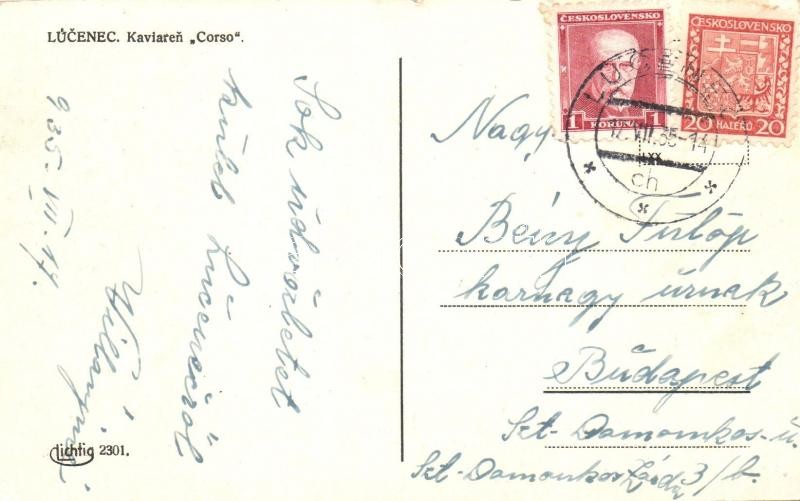 LÚČENEC. Kaviareň „Corso“.
935 VII. 17.
Sok üdvözletet
küld Lucenecről
Lichtig 2301.
ČESKOSLOVENSKO
1 KORUNA 1
ČESKOSLOVENSKO
20 HALÉŘŮ 20
17.VII.35-14
ch
Nagy
Bévy Fülöp
karnagy úrnak
Budapest
Szt-Domonkos-u.
Szt-Domonkos 3/b.